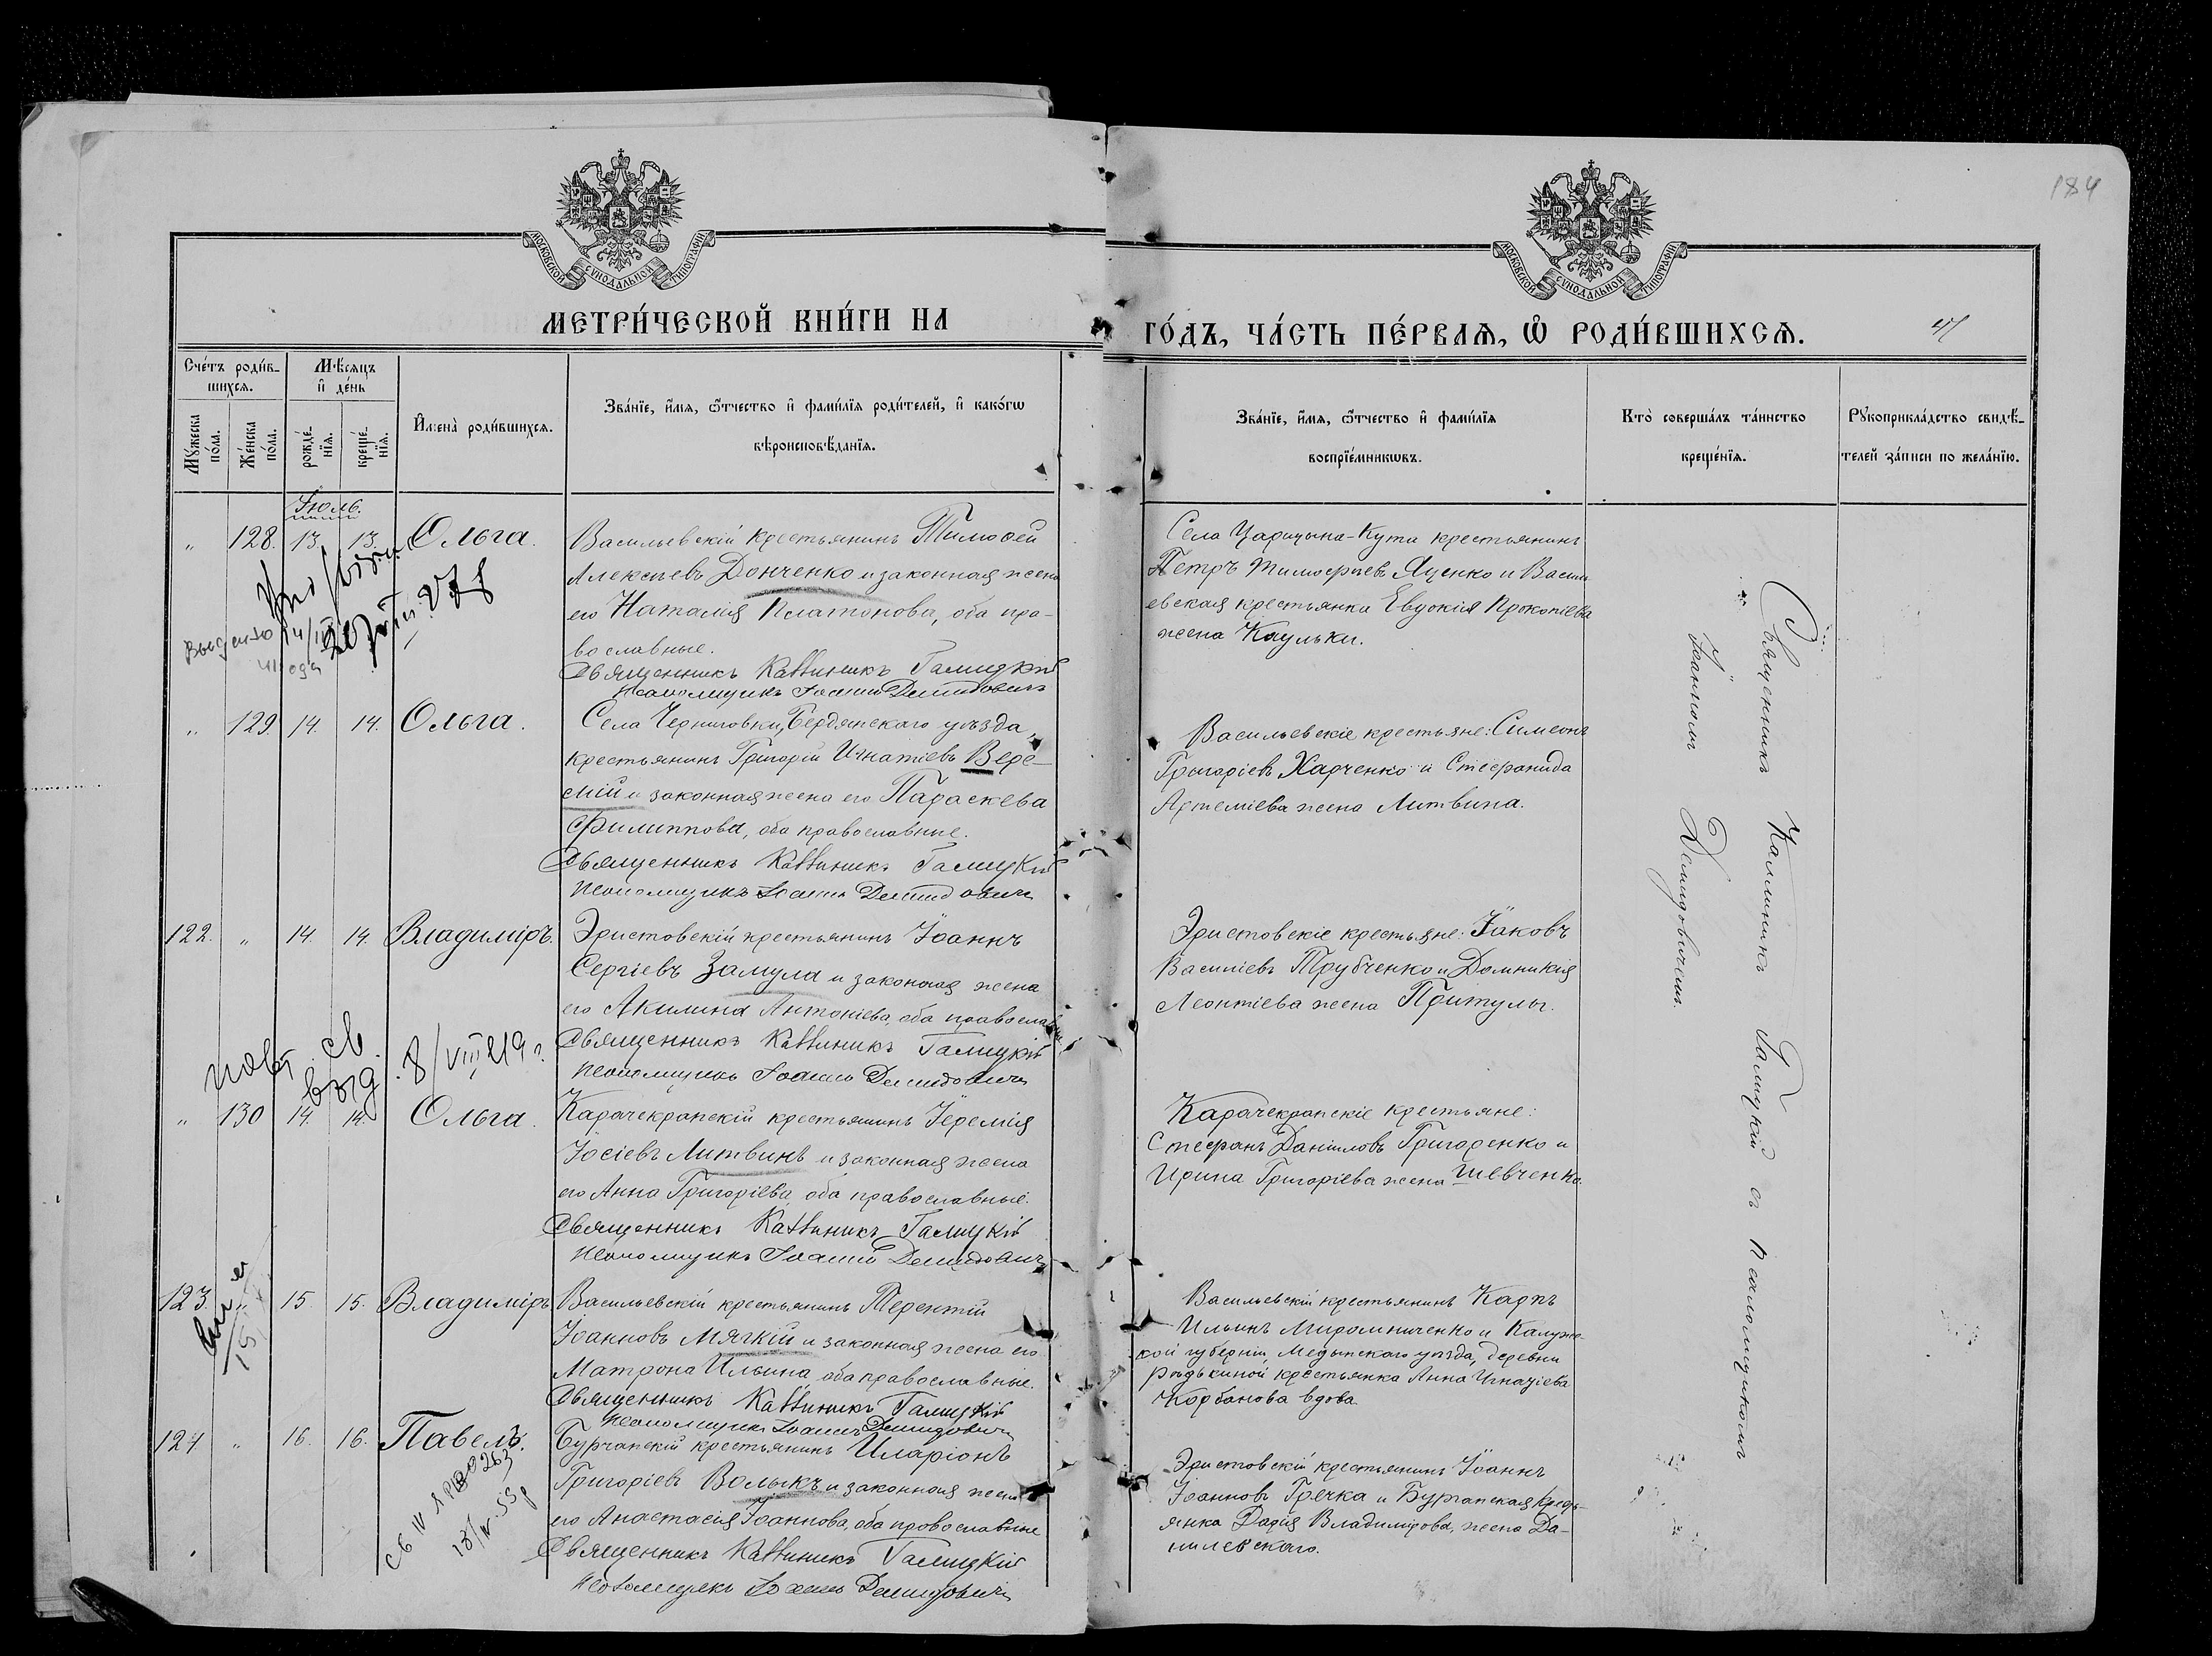 184
МОСКОВСКОЙ СѴНОДАЛЬНОЙ ТИПОГРАФІИ
МОСКОВСКОЙ СѴНОДАЛЬНОЙ ТИПОГРАФІИ
МЕТРИ́ЧЕСКОЙ КНИ́ГИ НА
ГО́ДЪ, ЧА́СТЬ ПЕ́РВАѦ, Ѡ҆ РОДИ́ВШИХСѦ.
Сче́тъ роди́в-
шихсѧ.
Мꙋ́жеска по́ла.
Же́нска по́ла.
Мѣ́сѧцъ
и҆ де́нь
рожде́-нїѧ.
креще́-нїѧ.
И҆мена̀ роди́вшихсѧ.
Зва́нїе, и҆́мѧ, ѻ҆́тчество и҆ фами́лїѧ роди́телей, и҆ како́гѡ
вѣроисповѣ́данїѧ.
Зва́нїе, и҆́мѧ, ѻ҆́тчество и҆ фами́лїѧ
воспрїе́мникѡвъ.
Кто̀ соверша́лъ та́инство
креще́нїѧ.
Рꙋкоприкла́дство свидѣ́-
телей за́писи по жела́нїю.
Іюль.
" 128. 13. 13. Ольга.
Васильевскій крестьянинъ Тимоѳей
Алексѣевъ Донченко и законная жена
его Наталія Платонова, оба пра-
вославные.
Священникъ Каллиникъ Галицкій
Псаломщикъ Іоаннъ Демидовичъ
Села Царицына-Кута крестьянинъ
Петръ Тимофѣевъ Яценко и Василь
евская крестьянка Евдокія Прокопіева
жена Каульки.
" 129. 14. 14. Ольга.
Села Черниговки, Бердянскаго уѣзда,
крестьянинъ Григорій Игнатіевъ Вере-
мій и законная жена его Параскева
Филиппова, оба православные.
Священникъ Каллиникъ Галицкій
Псаломщикъ Іоаннъ Демидовичъ
Васильевскіе крестьяне: Симеонъ
Григоріевъ Харченко и Стефанида
Артеміева жена Литвина.
122. " 14. 14. Владиміръ.
Эристовскій крестьянинъ Іоаннъ
Сергіевъ Замула и законная жена
его Акилина Антоніева, оба православн
Священникъ Каллиникъ Галицкій
Псаломщикъ Іоаннъ Демидовичъ
Эристовскіе крестьяне: Іаковъ
Василіевъ Трубченко и Домникія
Леонтіева жена Притулы.
" 130 14. 14. Ольга.
Карачекракскій крестьянинъ Іеремія
Іосіевъ Литвинъ и законная жена
его Анна Григоріева, оба православные.
Священникъ Каллиникъ Галицкій
Псаломщикъ Іоаннъ Демидовичъ
Карачекракскіе крестьяне:
Стефанъ Даніиловъ Григоренко и
Ирина Григоріева жена Шевченка.
123. " 15. 15. Владиміръ
Васильевскій крестьянинъ Терентій
Іоанновъ Мягкій и законная жена его
Матрона Ильина оба православные.
Священникъ Каллиникъ Галицкій
Псаломщикъ Іоаннъ Демидовичъ
Васильевскій крестьянинъ Карпъ
Ильинъ Мирошниченко и Калуж-
кой губерніи, Медынскаго уѣзда, деревни
крестьянка Анна Игнатіева
вдова
124 " 16. 16. Павелъ.
Бурчакскій крестьянинъ Иларіонъ
Григоріевъ Волыкъ и законная жена
его Анастасія Іоаннова, оба православные
Священникъ Каллиникъ Галицкій
Псаломщикъ Іоаннъ Демидовичъ
Эристовскій крестьянинъ Іоаннъ
Іоанновъ Гречка и Бурчакская крест-
янка Дарія Владимірова, жена Да-
нилевскаго.
Священникъ Каллиникъ Галицкій съ псаломщикомъ
Іоанномъ Демидовичемъ.